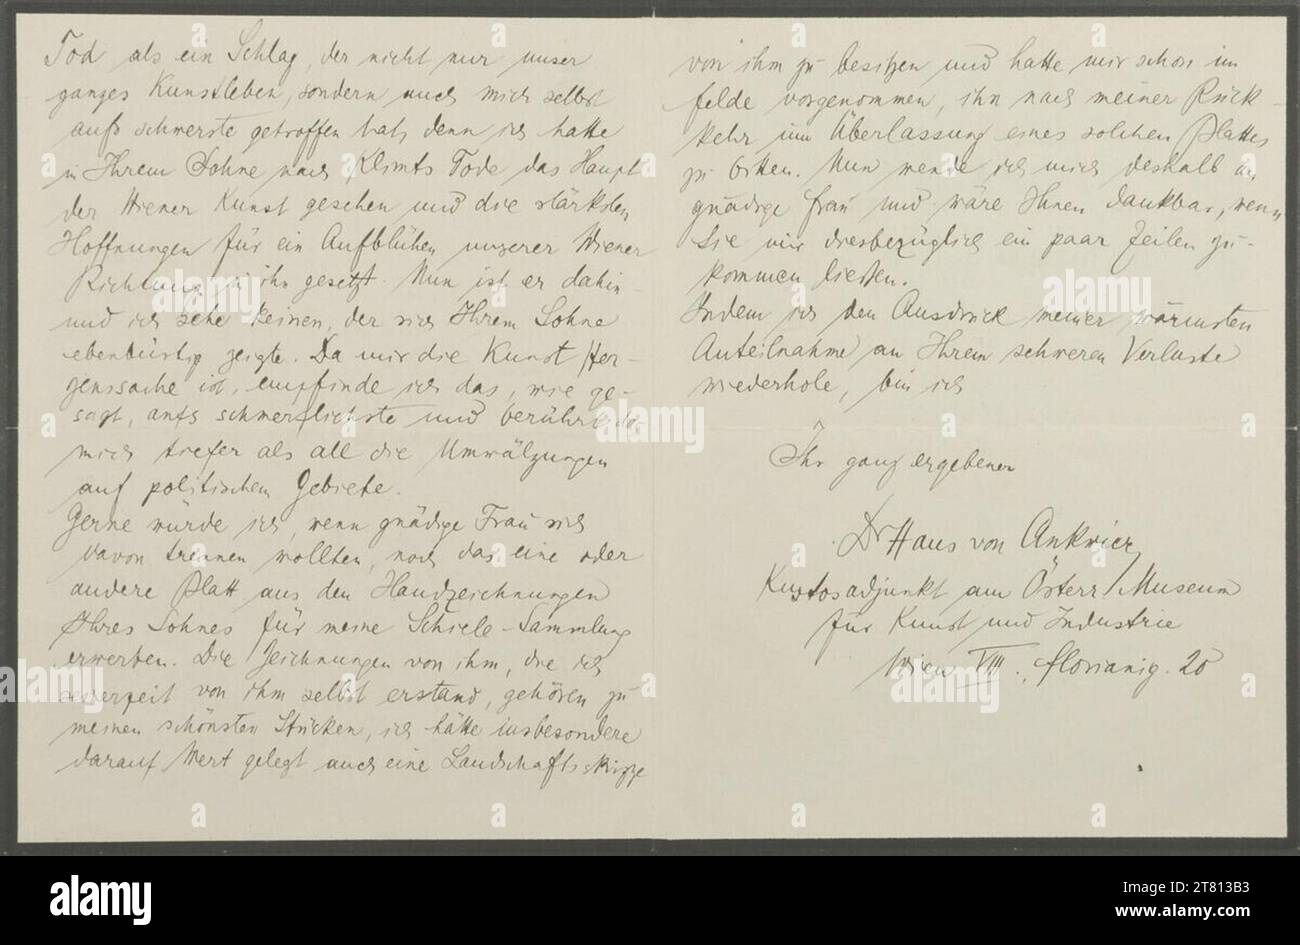 Tod als ein Schlag, der nicht nur unser
ganzes Kunstleben, sondern auch mich selbst
aufs schwerste getroffen hat, denn ich hatte
in Ihrem Sohne nach Klimts Tode das Haupt
der Wiener Kunst gesehen und die stärksten
Hoffnungen für ein Aufblühen unserer Wiener
Richtung in ihn gesetzt. Nun ist er dahin
und ich sehe keinen, der sich Ihrem Sohne
ebenbürtig zeigte. Da mir die Kunst Her-
zenssache ist, empfinde ich das, wie ge-
sagt, aufs schmerzlichste und berührt das
mich tiefer als all die Umwälzungen
auf politischem Gebiete.
Gerne würde ich, wenn gnädige Frau sich
davon trennen wollten, noch das eine oder
andere Blatt aus den Handzeichnungen
Ihres Sohnes für meine Schiele-Sammlung
erwerben. Die Zeichnungen von ihm, die ich
seinerzeit von ihm selbst erstand, gehören zu
meinen schönsten Stücken, ich hätte insbesondere
darauf Wert gelegt auch eine Landschaftsskizze
von ihm zu besitzen und hatte mir schon im
Felde vorgenommen, ihn nach meiner Rück-
kehr um Überlassung eines solchen Blattes
zu bitten. Nun wende ich mich deshalb an
gnädige Frau und wäre Ihnen dankbar, wenn
Sie mir diesbezüglich ein paar Zeilen zu-
kommen ließen.
Indem ich den Ausdruck meiner wärmsten
Anteilnahme an Ihrem schweren Verluste
wiederhole, bin ich
Ihr ganz ergebener
Dr Hans von Ankwicz
Kustosadjunkt am Österr. Museum
für Kunst und Industrie
Wien VIII., Florianig. 20
alamy
Image ID: 2T813B3
www.alamy.com